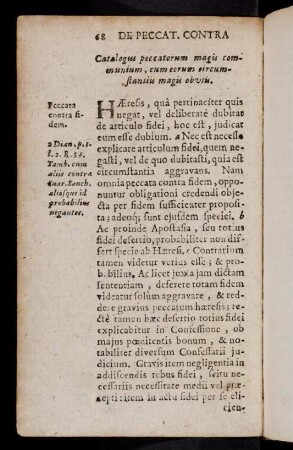 68 DE PECCAT. CONTRA
Catalogus peccatorum magis com-
munium, cum eorum circum-
stantiis magis obviis.
Peccata
contra fi-
dem.
a Dian. p. 1.
t. 2. R. 54.
Tamb. cum
aliis contra
Suar. Sanch.
aliosque id
probabilius
negantes.
HÆresis, quâ pertinaciter quis
negat, vel deliberatè dubitat
de articulo fidei, hoc est, judicat
eum esse dubium. a Nec est necesse
explicare articulum fidei, quem ne-
gasti, vel de quo dubitasti, quia est
circumstantia aggravans. Nam
omnia peccata contra fidem, oppo-
nuntur obligationi credendi obje-
cta per fidem sufficienter proposi-
ta; adeoq; sunt ejusdem speciei. b
Ac proinde Apostasia, seu totius
fidei desertio, probabiliter non dif-
fert specie ab Hæresi. c Contrarium
tamen videtur verius esse; & pro-
babilius. Ac licet juxta jam dictam
sententiam, deserere totam fidem
videatur solùm aggravare, & red-
dere gravius peccatum hæresis; re-
ctè tamen hæc desertio totius fidei
explicabitur in Confessione, ob
majus pœnitentis bonum, & no-
tabiliter diversum Confessarii ju-
dicium. Gravis item negligentia in
addiscendis rebus fidei, scitu ne-
cessariis necessitate medii vel præ-
cepti: item in actu fidei per se eli-
cien-